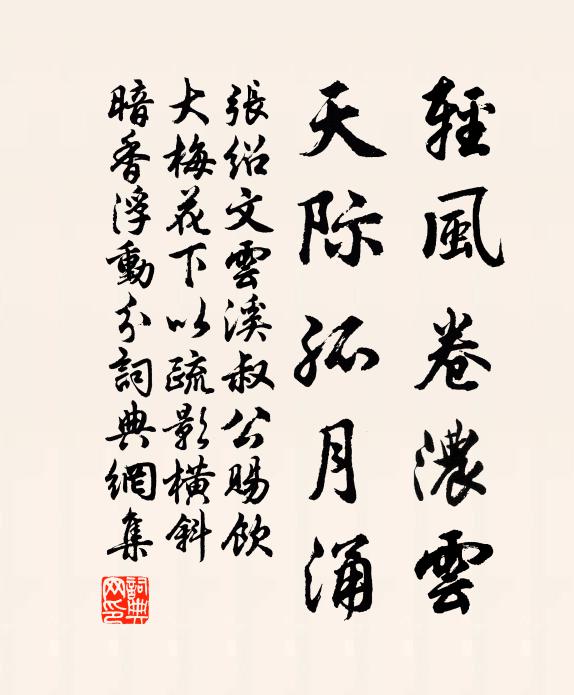 輕風卷濃雲
天际孤月涌
張绍文雲溪叔公賜飲
大梅花下以疏影橫斜
暗香浮動分詞典網集
詞典网印